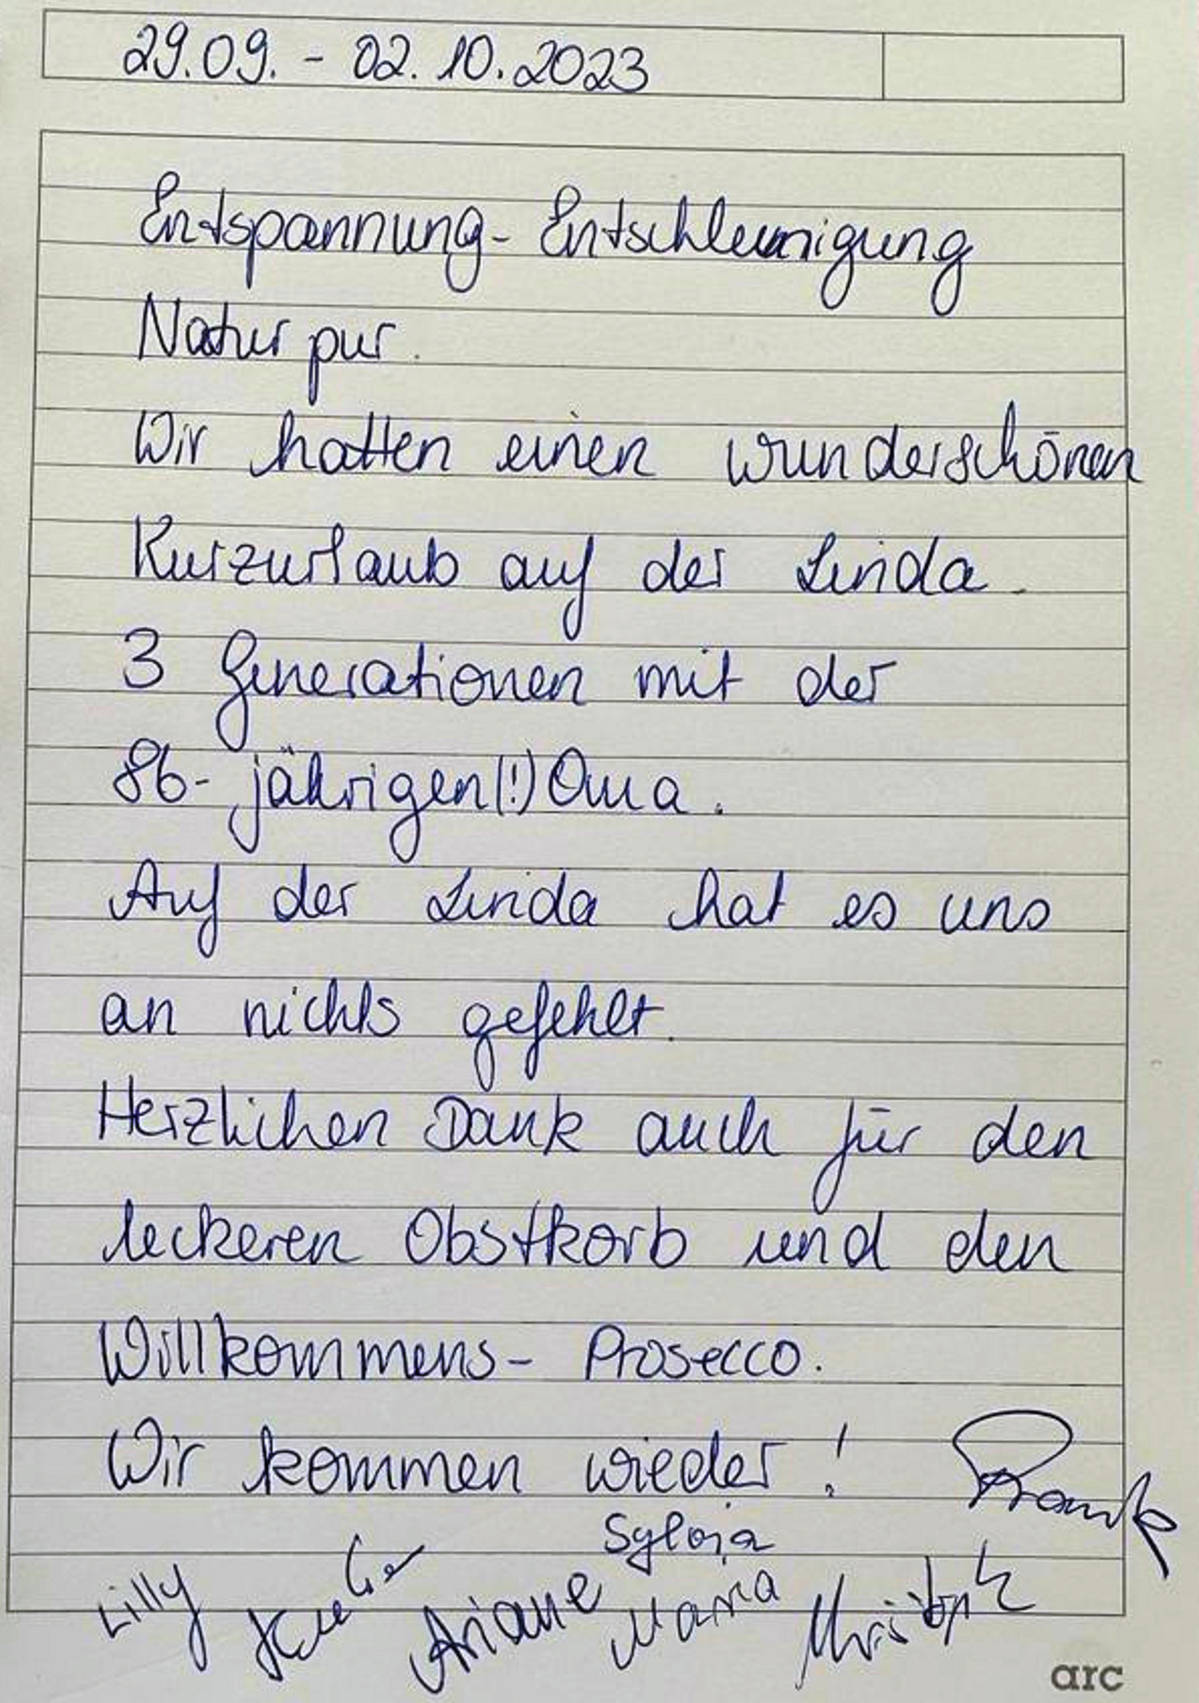 29.09. - 02.10.2023
Entspannung - Entschleunigung
Natur pur.
Wir hatten einen wunderschönen
Kurzurlaub auf der Linda.
3 Generationen mit der
86-jährigen(!) Oma.
Auf der Linda hat es uns
an nichts gefehlt.
Herzlichen Dank auch für den
leckeren Obstkorb und den
Willkommens - Prosecco.
Wir kommen wieder!
Frank
Sylvia
Lilly Ariane Maria Christoph
arc